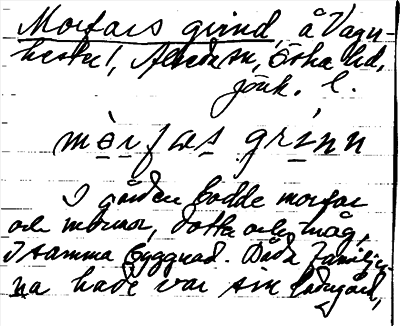 Morfars grind, å Vagn-
hester!, Östra hd,
jönk. l.
mòrfas grinn
I gården bodde morfar
och mormor, dotter och måg,
I samma byggnad. Båda familjer-
na hade var sin ladugård,